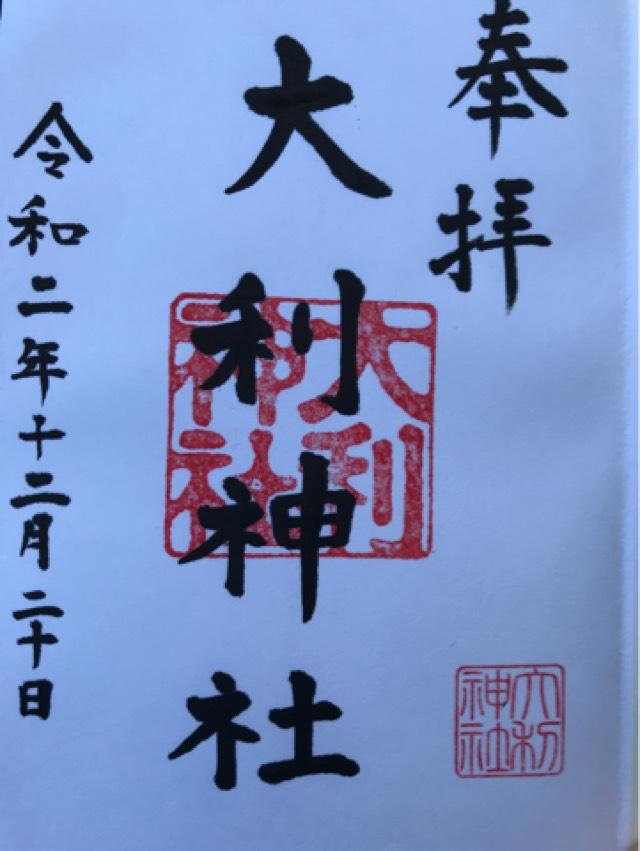 奉拝
大利神社
令和二年十二月二十日
大利神社
大利神社